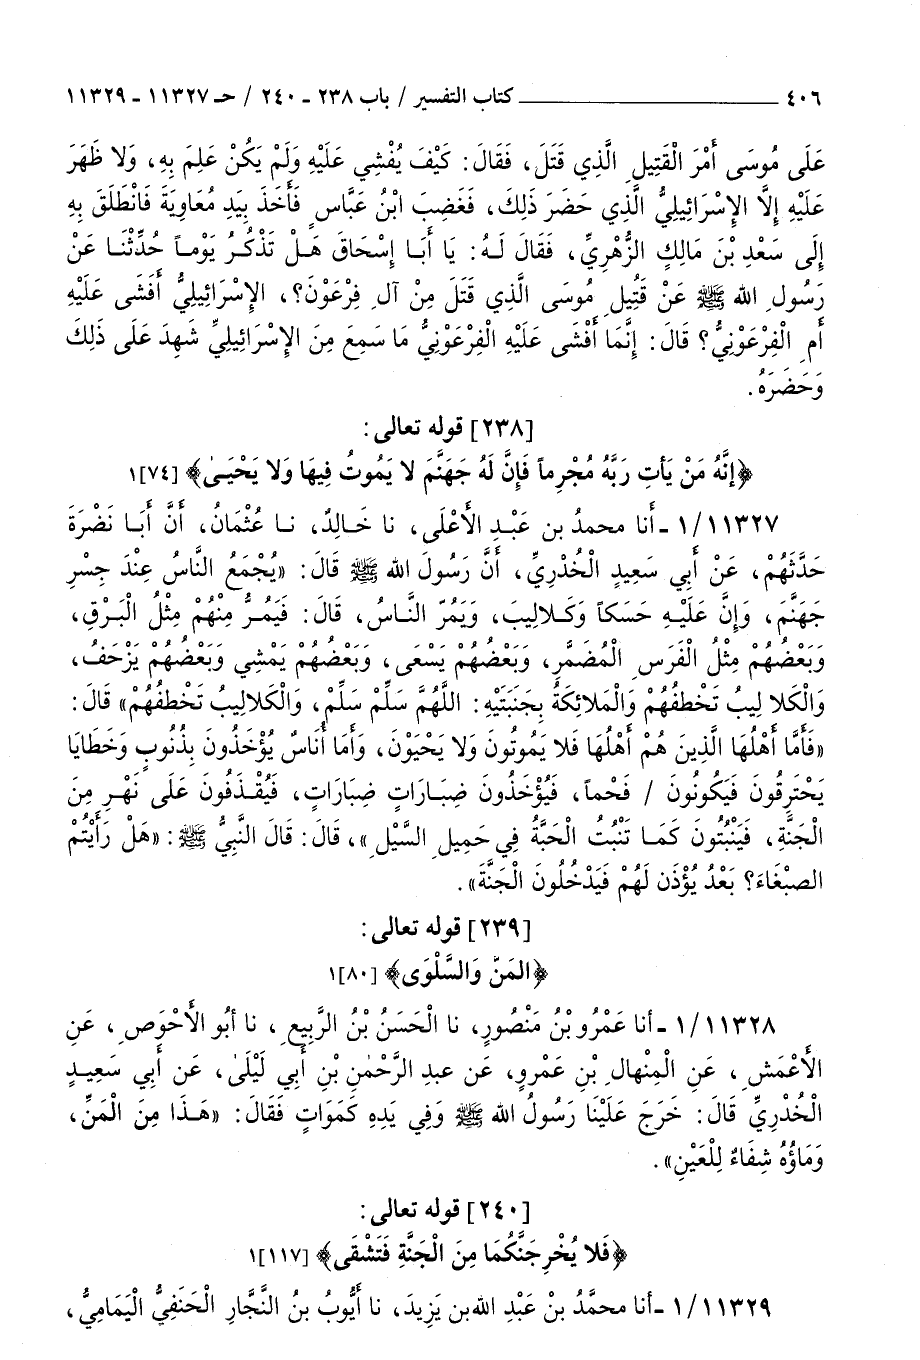 ٤٠٦ ــــــــــــــــ كتاب التفسير / باب ٢٣٨ - ٢٤٠ / حـ ١١٣٢٧ - ١١٣٢٩
عَلَى مُوسَى أَمْرَ الْقَتِيلِ الَّذِي قَتَلَ، فَقَالَ: كَيْفَ يُفْشِي عَلَيْهِ وَلَمْ يَكُنْ عَلِمَ بِهِ، وَلا ظَهَرَ
عَلَيْهِ إِلَّا الإِسْرَائِيلِيُّ الَّذِي حَضَرَ ذَلِكَ، فَغَضِبَ ابْنُ عَبَّاسٍ فَأَخَذَ بِيَدِ مُعَاوِيَةَ فَانْطَلَقَ بِهِ
إِلَى سَعْدِ بْنِ مَالِكٍ الزُّهْرِيِّ، فَقَالَ لَهُ: يَا أَبَا إِسْحَاقَ هَلْ تَذْكُرُ يَوْماً حُدِّثْنَا عَنْ
رَسُولِ الله ﷺ عَنْ قَتِيلِ مُوسَى الَّذِي قَتَلَ مِنْ آلِ فِرْعَوْنَ؟، الإِسْرَائِيلِيُّ أَفْشَى عَلَيْهِ
أَمِ الْفِرْعَوْنِيُّ؟ قَالَ: إِنَّمَا أَفْشَى عَلَيْهِ الْفِرْعَوْنِيُّ مَا سَمِعَ مِنَ الإِسْرَائِيلِيِّ شَهِدَ عَلَى ذَلِكَ
وَحَضَرَهُ.
[٢٣٨] قوله تعالى:
﴿إِنَّهُ مَنْ يَأتِ رَبَّهُ مُجْرِماً فَإِنَّ لَهُ جَهَنَّمَ لا يَمُوتُ فِيهَا وَلا يَحْيَىٰ﴾ [٧٤]١
١/١١٣٢٧ - أَنا محمدُ بن عَبْدِ الأَعْلَى، نا خَالِدٌ، نا عُثْمَانُ، أَنَّ أَبَا نَضْرَةَ
حَدَّثَهُمْ، عَنْ أَبي سَعِيدٍ الْخُدْرِيِّ، أَنَّ رَسُولَ الله ﷺ قَالَ: «يُجْمَعُ النَّاسُ عِنْدَ جِسْرِ
جَهَنَّمَ، وَإِنَّ عَلَيْهِ حَسَكاً وَكَلالِيبَ، وَيَمُرّ النَّاسُ، قَالَ: فَيَمُرُّ مِنْهُمْ مِثْلُ الْبَرْقِ،
وَبَعْضُهُمْ مِثْلُ الْفَرَسِ الْمُضَمَّرِ، وَبَعْضُهُمْ يَسْعَى، وَبَعْضُهُمْ يَمْشِي وَبَعْضُهُمْ يَزْحَفُ،
وَالْكَلالِيبُ تَخْطَفُهُمْ وَالْمَلائِكَةُ بِجَنَبَتَيْهِ: اللَّهُمَّ سَلِّمْ سَلِّمْ، وَالْكَلالِيبُ تَخْطفُهُمْ» قَالَ:
«فَأَمَّا أَهْلُهَا الَّذِينَ هُمْ أَهْلُهَا فَلا يَمُوتُونَ وَلا يَحْيَوْنَ، وَأَمَا أُنَاسٌ يُؤْخَذُونَ بِذُنُوبٍ وَخَطَايَا
يَحْتَرِقُونَ فَيَكُونُونَ / فَحْماً، فَيُؤْخَذُونَ ضِبَارَاتٍ ضِبَارَاتٍ، فَيُقْذَفُونَ عَلَى نَهْرٍ مِنَ
الْجَنَّةِ، فَيَنْبُتُونَ كَمَا تَنْبُتُ الْحَبَّةُ فِي حَمِيلِ السَّيْلِ»، قَالَ: قَالَ النَّبِيُّ ﷺ: «هَلْ رَأَيْتُمْ
الصبْغَاءَ؟ بَعْدُ يُؤْذَن لَهُمْ فَيَدْخُلُونَ الْجَنَّةَ».
[٢٣٩] قوله تعالى:
﴿المَنّ وَالسَّلْوَى﴾ [٨٠]١
١/١١٣٢٨ - أنا عَمْرُو بْنُ مَنْصُورٍ، نا الْحَسَنُ بْنُ الرَّبِيعِ، نا أبُو الأَحْوَصِ، عَنِ
الأَعْمَشِ، عَنِ الْمِنْهالِ بْنِ عَمْرٍو، عَن عبدِ الرَّحْمٰنِ بْنِ أَبي لَيْلَىٰ، عَن أَبي سَعِيدٍ
الْخُدْرِيِّ قَالَ: خَرَجَ عَلَيْنَا رَسُولُ الله ﷺ وَفِي يَدِهِ كَمَوَاتٍ فَقَالَ: «هَذَا مِنَ الْمَنِّ،
وَمَاؤُهُ شِفَاءٌ لِلْعَيْنِ».
[٢٤٠] قوله تعالى:
﴿فَلا يُخْرِجَنَّكُمَا مِنَ الْجَنَّةِ فَتَشْقَى﴾ [١١٧]١
١/١١٣٢٩ - أنا محمَّدُ بنْ عَبْدِ الله بن يَزِيدَ، نا أَيُّوبُ بنُ النَّجَّارِ الْحَنَفِيُّ الْيَمَامِيُّ،